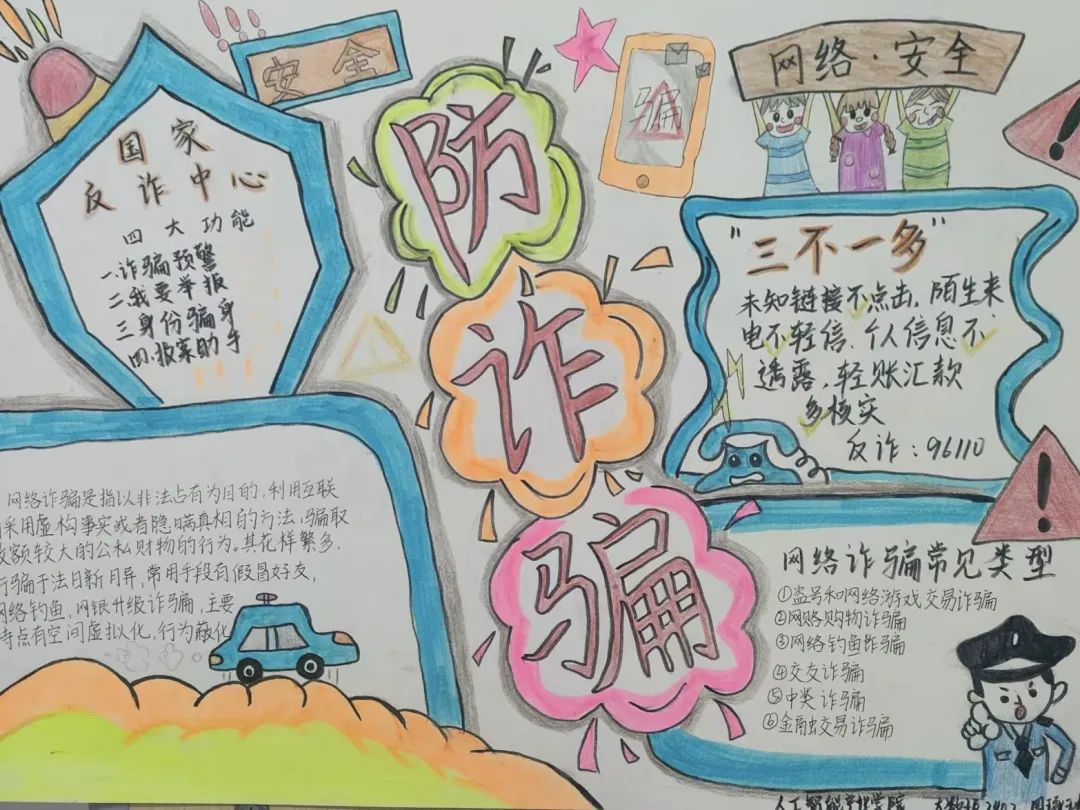 安全
国家
反诈中心
四大功能
一诈骗预警
二我要举报
三身份骗身
四.报案助手
防
诈
骗
骗
网络·安全
"三不一多"
未知链接不点击,陌生来
电不轻信、个人信息不
透露,轻账汇款
多核实
反诈:96110
网络诈骗是指以非法占有为目的,利用互联
采用虚构事实或者隐瞒真相的方法,骗取
额较大的公私财物的行为。其花样繁多,
行骗手法日新月异,常用手段有假冒好友,
网络钓鱼,网银升级诈骗,主要
特点有空间虚拟化,行为蔽化
网络诈骗常见类型
①盗号和网络游戏交易诈骗
②网赂购物诈骗
③网络钓鱼诈骗
④交友诈骗
⑤中类诈骗
⑥金融交易诈骗
人工智能产业学院